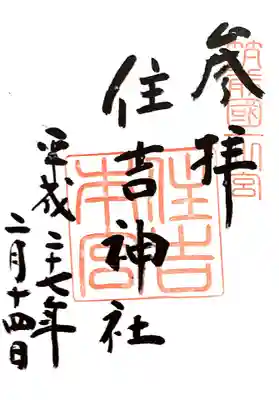 参拝
筑前國一之宮
住吉神社
住吉本宮
平成二十七年
二月十四日